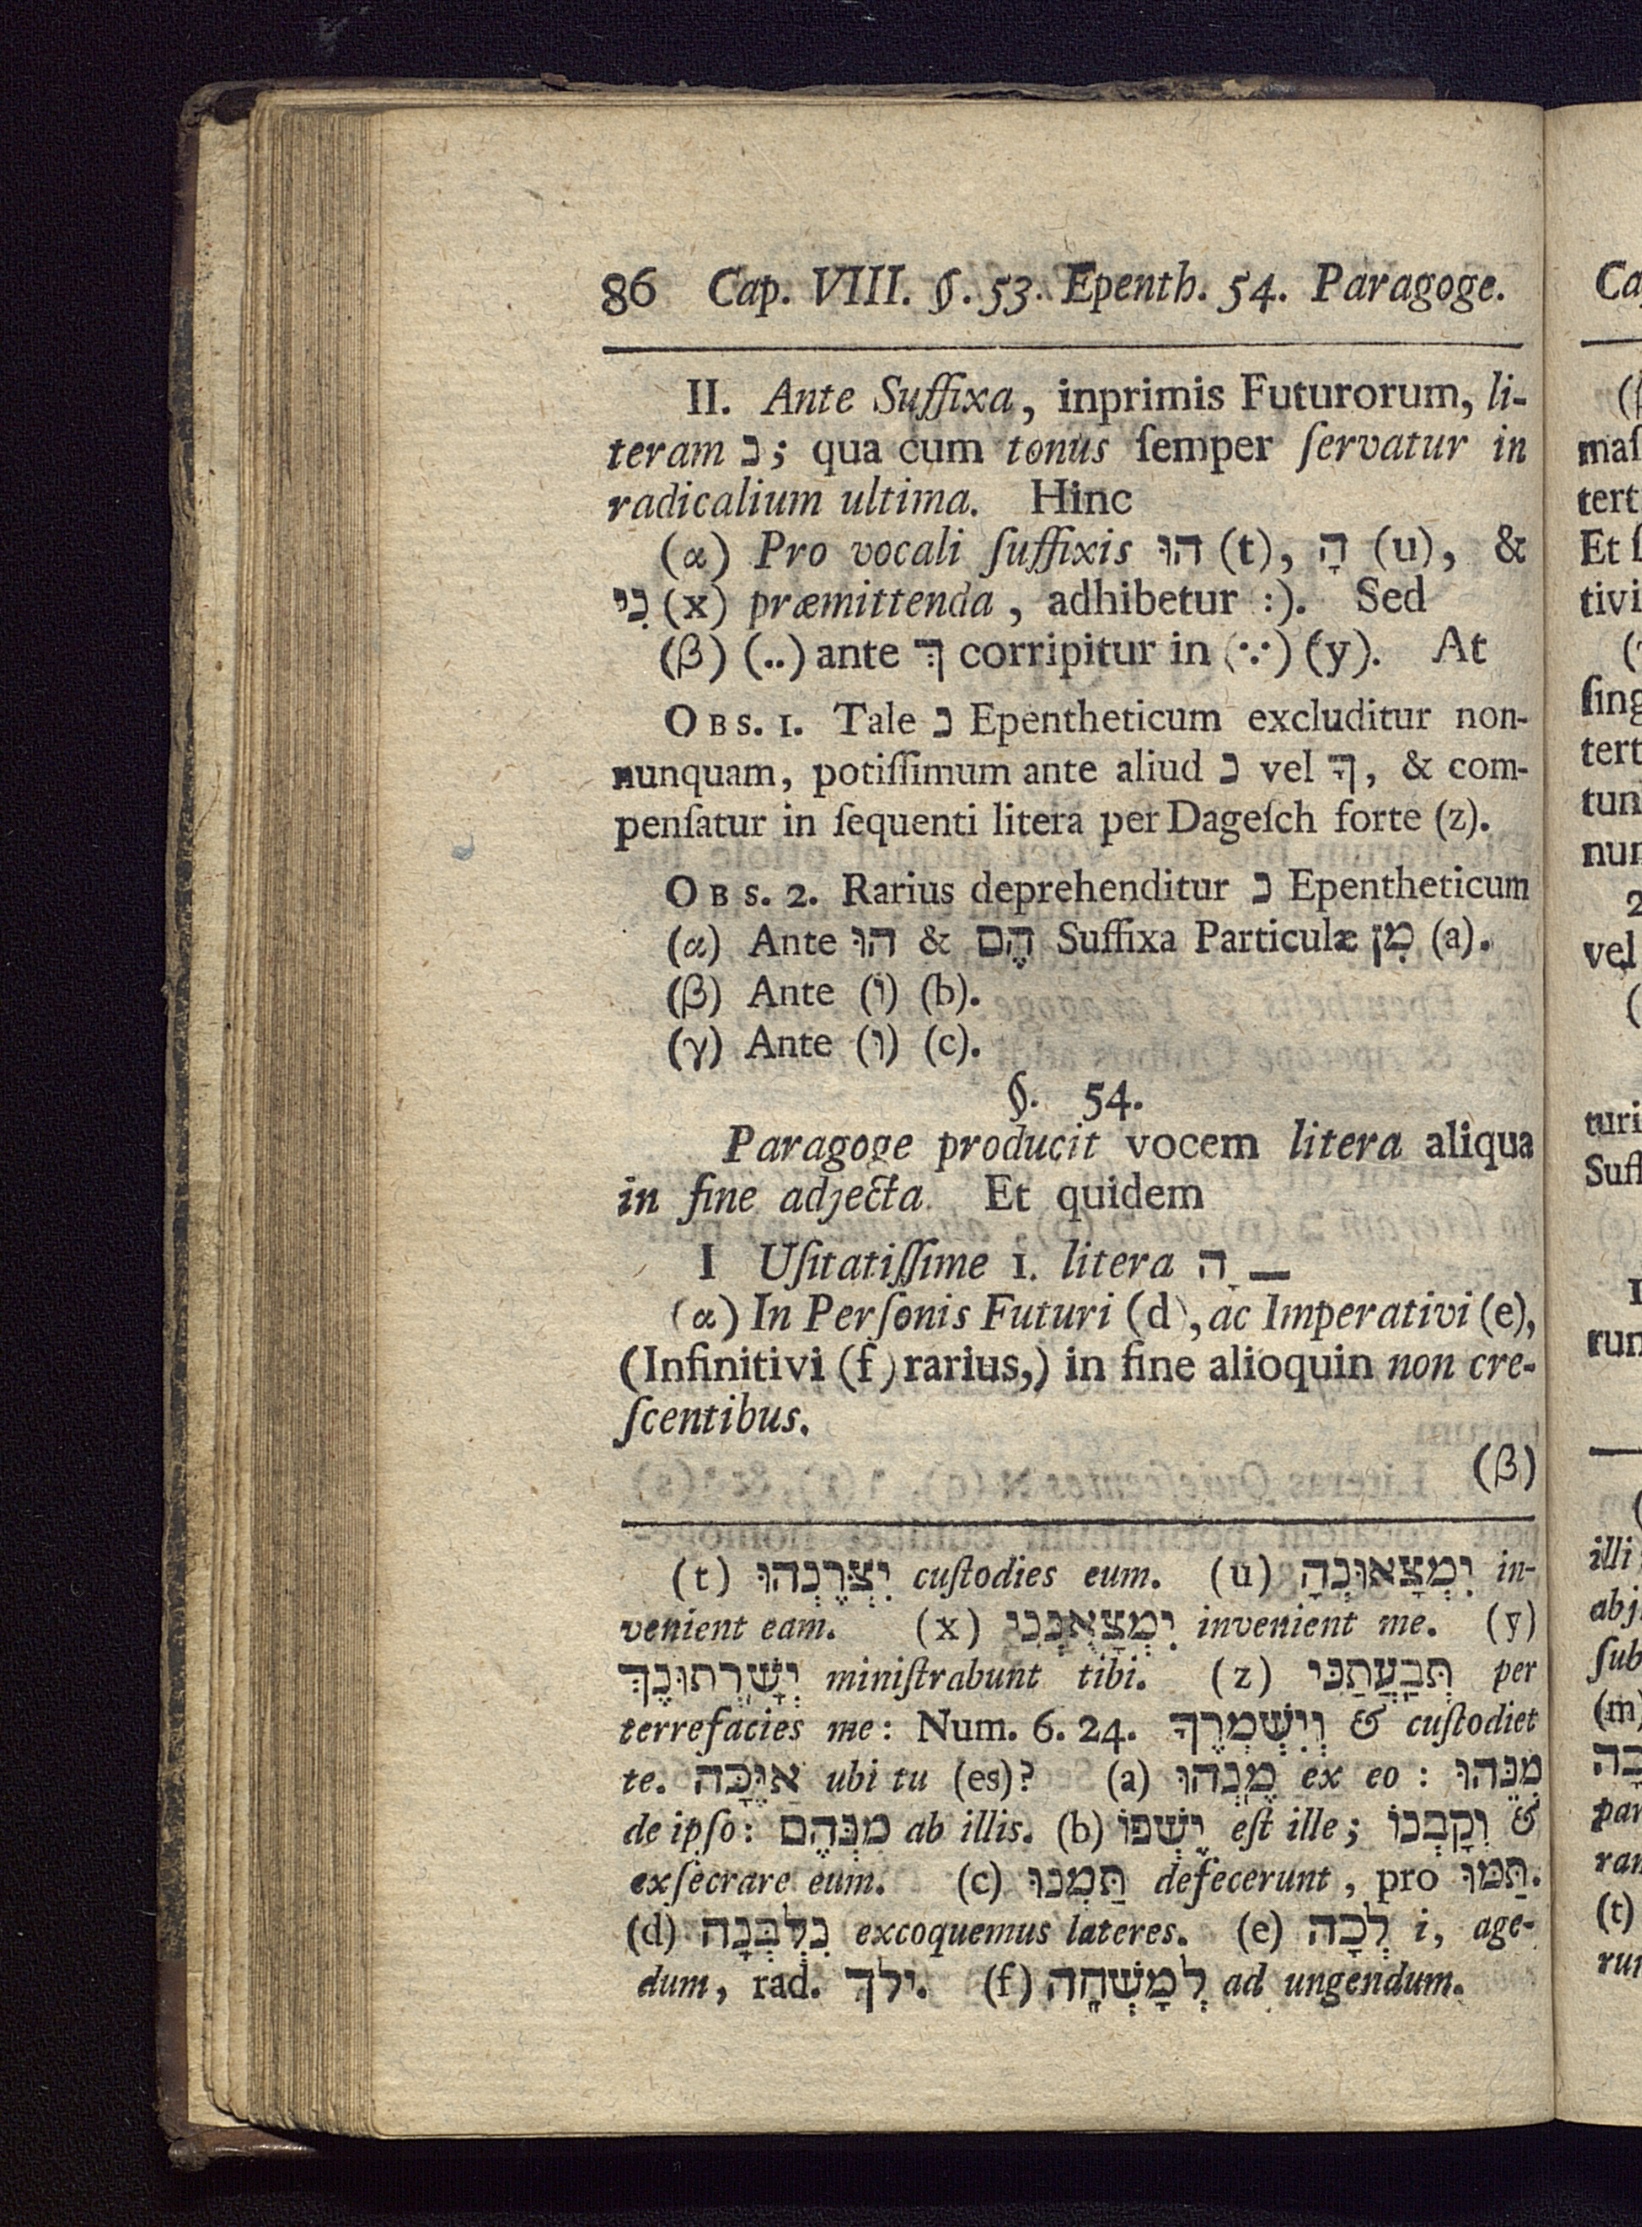 86 Cap. VIII. §. 53. Epenth. 54. Paragoge.
II. Ante Suffixa, inprimis Futurorum, li-
teram נ; qua cum tonus ſemper ſervatur in
radicalium ultima. Hinc
(α) Pro vocali ſuffixis הוּ (t), הָ (u), &
נִי (x) præmittenda, adhibetur :). Sed
(β) (..) ante ךְ corripitur in (∵) (y). At
OBS. 1. Tale נ Epentheticum excluditur non-
nunquam, potiſſimum ante aliud נ vel ךָ, & com-
penſatur in ſequenti litera per Dageſch forte (z).
OBS. 2. Rarius deprehenditur נ Epentheticum
(α) Ante הוּ & הֶם Suffixa Particulæ מִן (a).
(β) Ante (וֹ) (b).
(γ) Ante (וּ) (c).
§. 54.
Paragoge producit vocem litera aliqua
in fine adjecta. Et quidem
I Uſitatiſſime 1. litera ה ָ—
(α) In Perſonis Futuri (d), ac Imperativi (e),
(Infinitivi (f) rarius,) in fine alioquin non cre-
ſcentibus.
(β)
(t) יִצְּרֶנְהוּ cuſtodies eum. (u) יִמְצָאוּנְהָ in-
venient eam. (x) יִמְצָאֻנְנִי invenient me. (y)
יְשָׁרְתוּנֶךְ miniſtrabunt tibi. (z) תְּבַעֲתַנִּי per
terrefacies me: Num. 6. 24. וְיִשְׁמְרֶךָּ & cuſtodiet
te. אַיֶּכָּה ubi tu (es)? (a) מֶנְהוּ ex eo: מִנֵּהוּ
de ipſo: מִנְּהֶם ab illis. (b) יֶשְׁנוֹ eſt ille; וְקָבְנוֹ &
exſecrare eum. (c) תַּמְנוּ defecerunt, pro תַּמּוּ.
(d) נִלְבְּנָה excoquemus lateres. (e) לְכָה i, age-
dum, rad. ילך. (f) לְמָשְׁחָה ad ungendum.